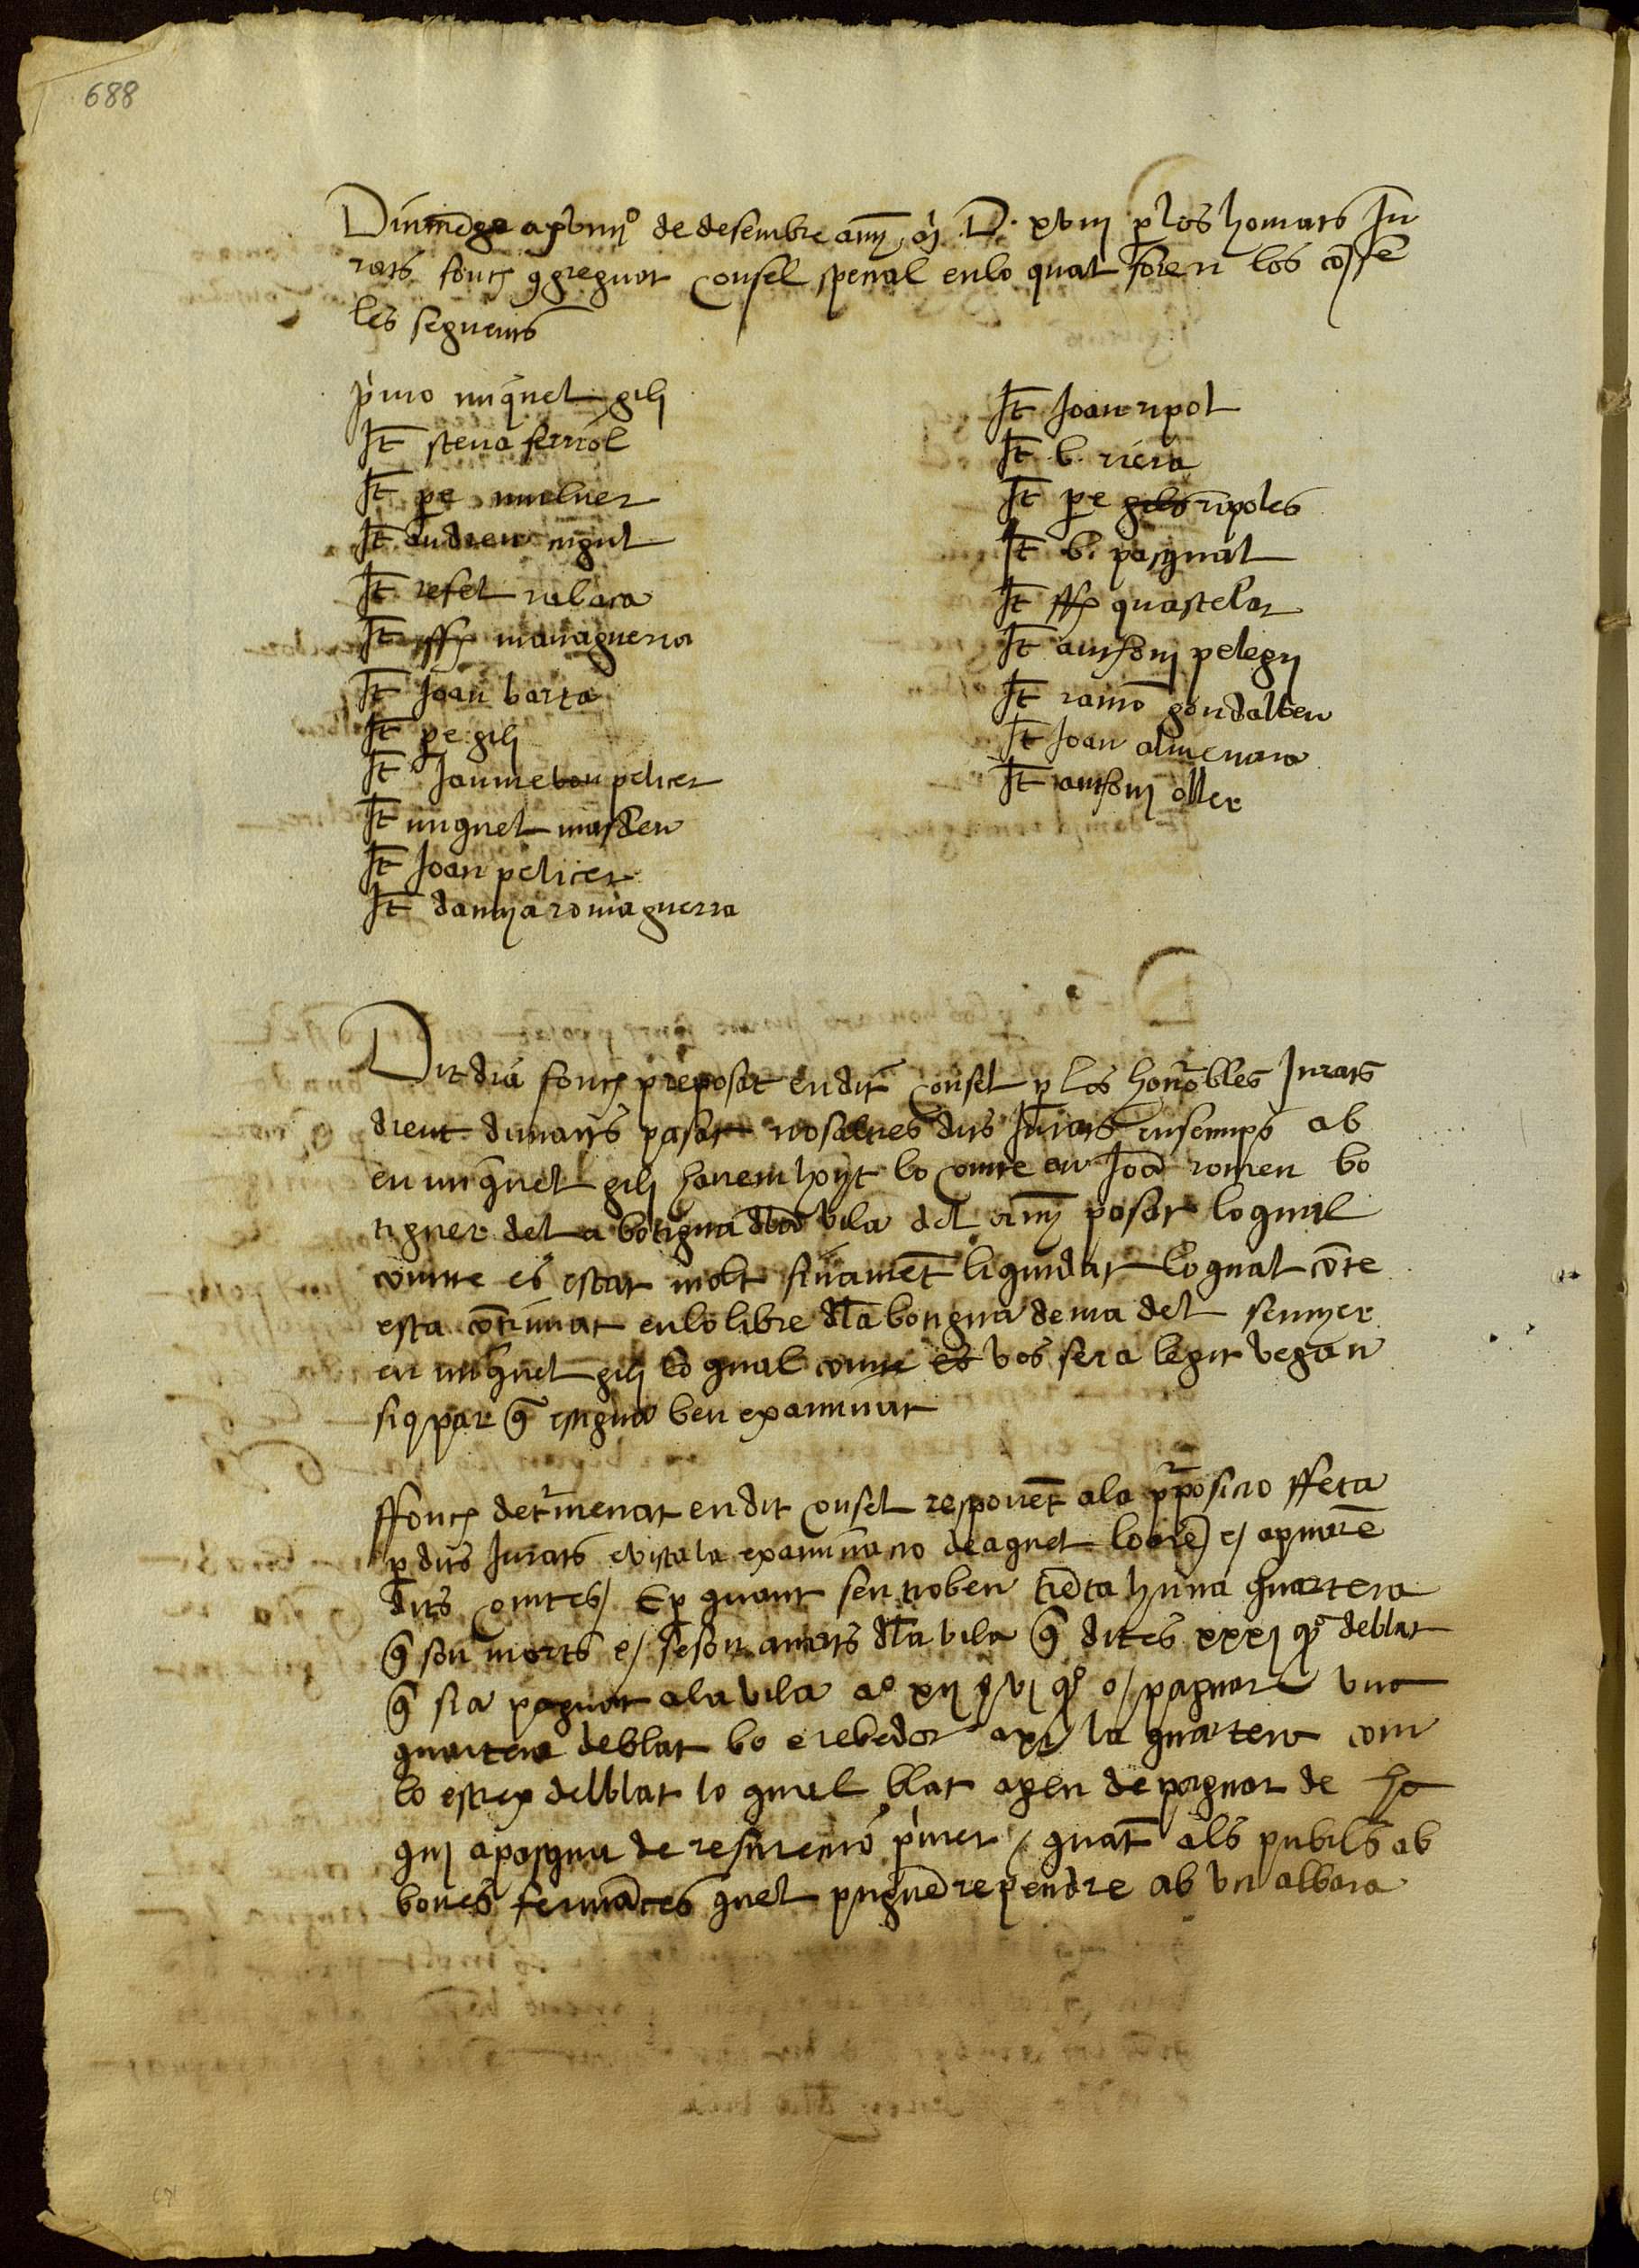 688
Diumēge a xviiijº de desembre anỹ Mj D. xviij p los honrats Ju
rats fonch 9greguat consel special en lo qual foren los cōse
les seguents
primo miquel gilj
It steua ferriol
It pe muluer
It andreu nigul
It refel
It ffx
It Joan barta
It pe gilj
It Jaume pelicer
It miquel masdeu
It Joan pelicer
It damya romaguerra
It Joan ripol
It b. riera
It pe ripoles
It b. pasqual
It ffx quastelar
It antonj pelegrj
It ramō gondalbeu
It Joan almenara
It antonj oller
Dit dia fonch preposat en dit consel p los honrobles Jurats
dient dimarts pasat nosaltres dits Jurats ensemps ab
en miquel gilj hauem hoyt lo comte en Joā romeu bo
tiguer del a botigua dla vila del anỹ pasat loqual
comte es estat molt finamēt liquidat loqual cōte
esta cōtinuat en lo libre dla botigua de ma del senyer
en miquel gilj lo qual comte vos sera legit vegan
siq par q̄ estigua ben examinat
ffonch detrmenat en dit consel responēt ala pposicio ffeta
p dits Jurats e vista la examinacio de aquel e aprouarē
dits comtes / E p quant sen troben trēta huna quartera
q̄ son morts e / seson anats dla vila q̄ dites xxxj qrº de blat
q̄ sia paguat ala vila aº xij paguar vna
quartera de blat bo e rebedor axi la quartera com
lo estrex del blat lo qual blat agen de paguar de
quj a pasqua de resurecio primer / quāt als pubils ab
bones fermāces quel puguē rependre ab vn albara